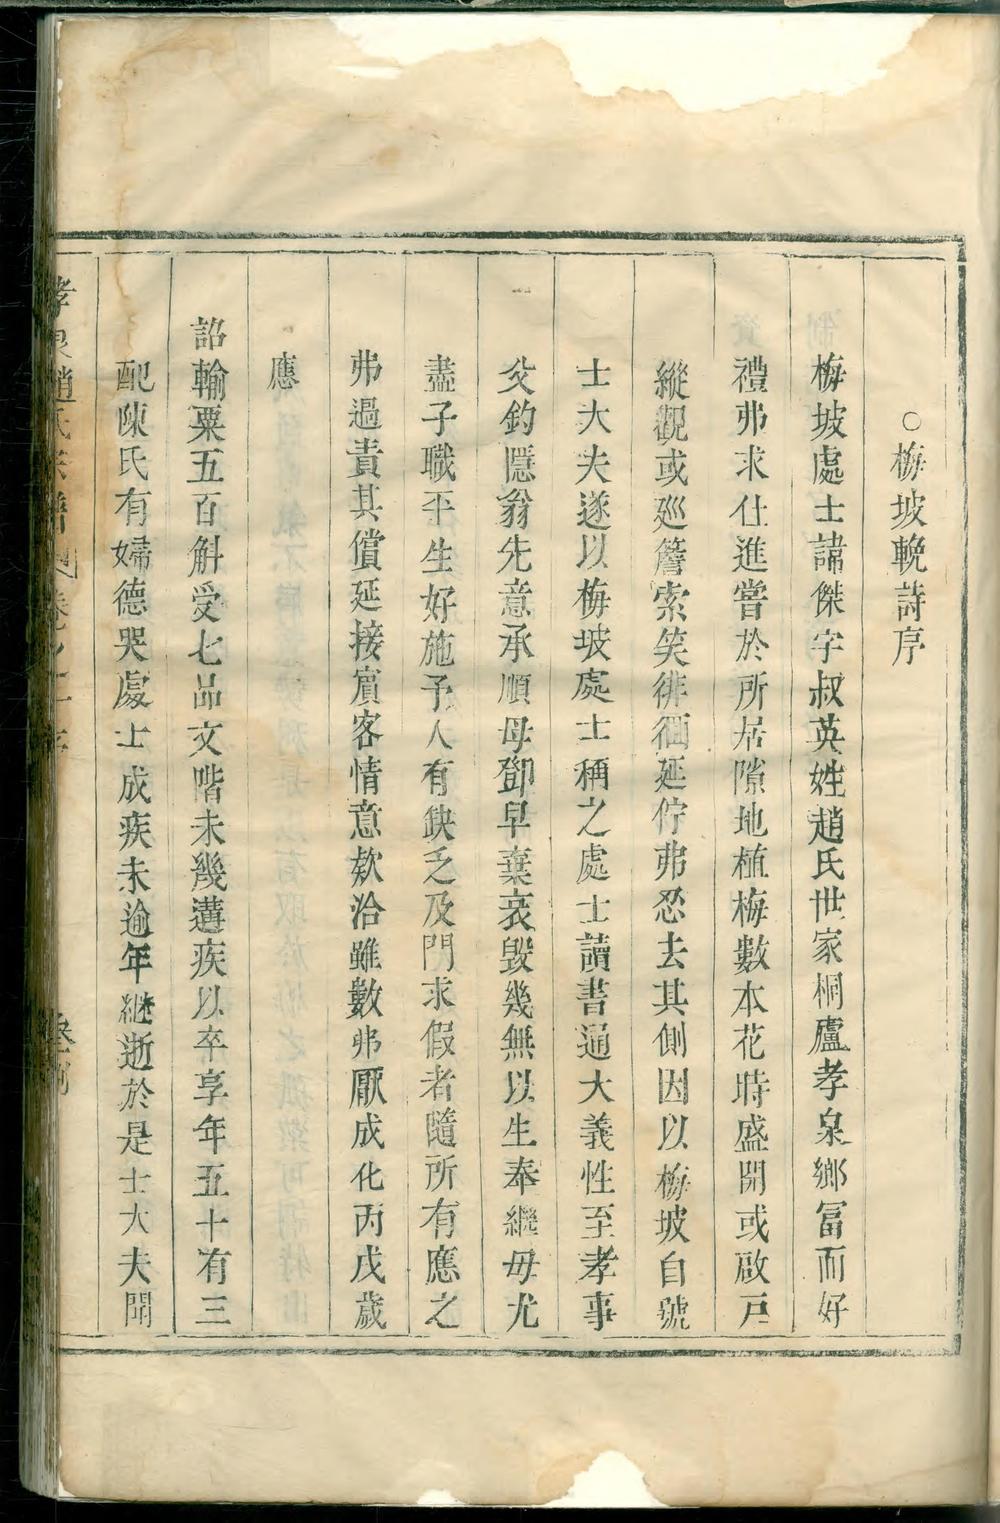 ○梅坡輓詩序
梅坡處士諱傑字叔英姓趙氏世家桐廬孝泉鄉冨而好
禮弗求仕進嘗於所居隙地植梅數本花時盛開或啟戸
縱觀或廵簷索笑徘徊延佇弗忍去其側因以梅坡自號
士大夫遂以梅坡處士稱之處士讀書通大義性至孝事
父釣隱翁先意承順母鄧早棄哀毀幾無以生奉繼母尤
盡子職平生好施予人有缺乏及門求假者隨所有應之
弗過責其償延接賔客情意欵洽雖數弗厭成化丙戌歲
應
詔輸粟五百斛受七品文階未幾遘疾以卒享年五十有三
配陳氏有婦德哭處士成疾未逾年継逝於是士大夫聞